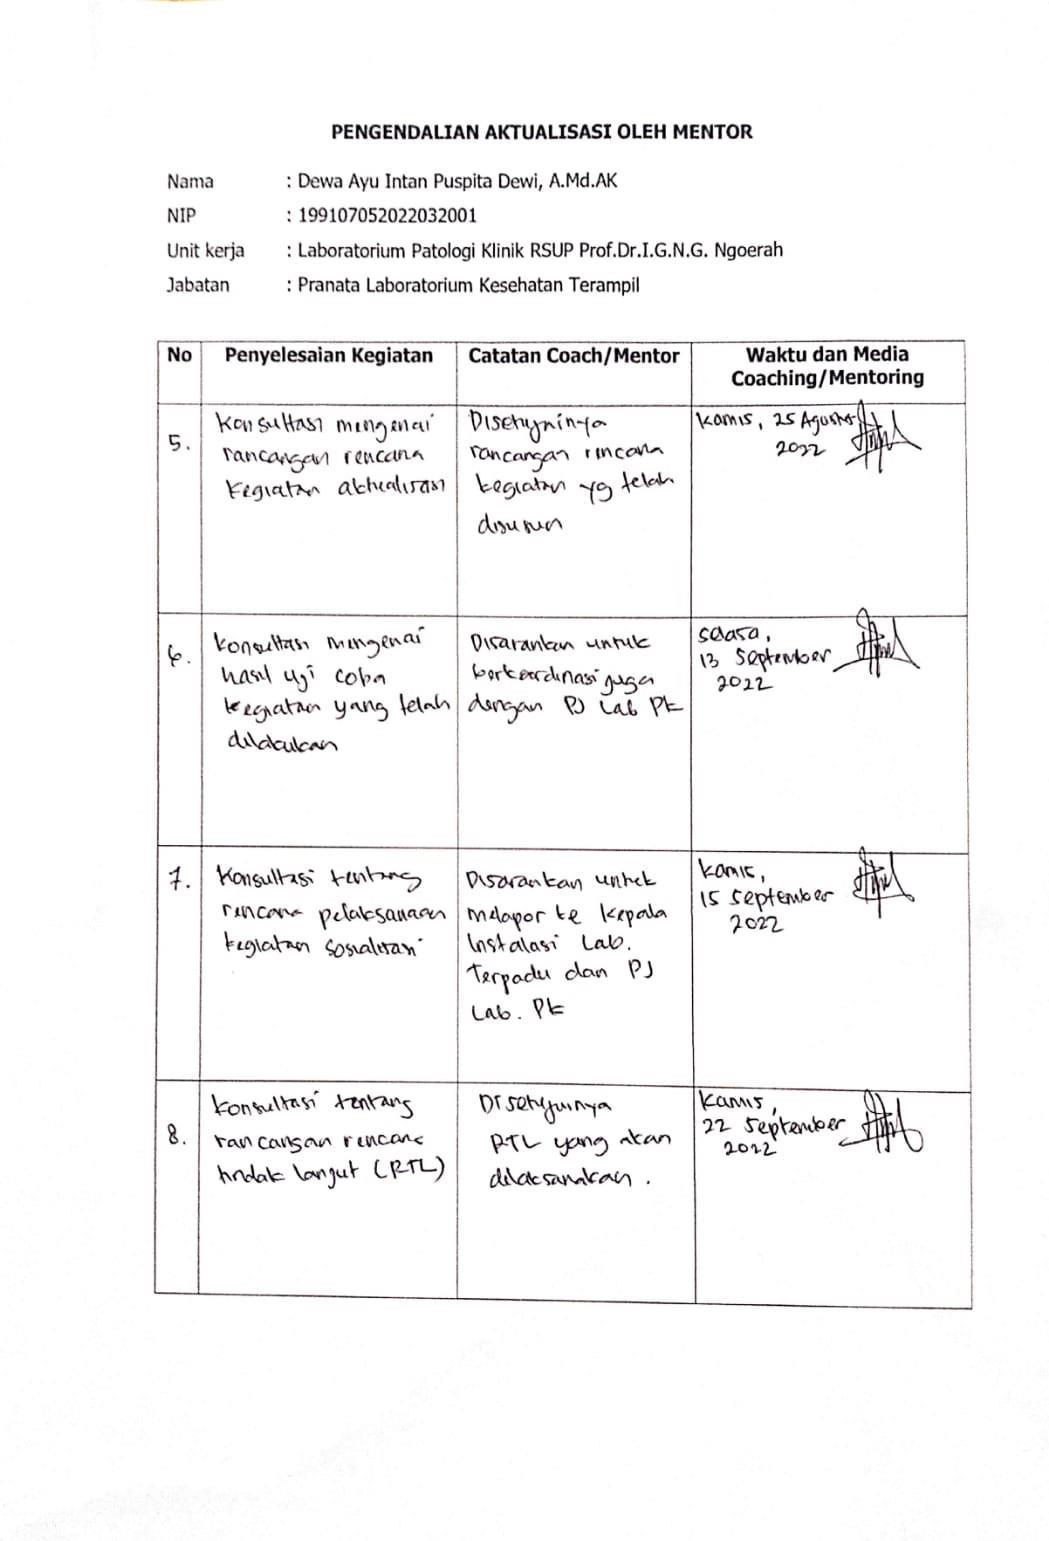 PENGENDALIAN AKTUALISASI OLEH MENTOR
Nama : Dewa Ayu Intan Puspita Dewi, A.Md.AK
NIP : 199107052022032001
Unit kerja : Laboratorium Patologi Klinik RSUP Prof.Dr.I.G.N.G. Ngoerah
Jabatan : Pranata Laboratorium Kesehatan Terampil
No Penyelesaian Kegiatan Catatan Coach/Mentor Waktu dan Media
Coaching/Mentoring
5.
Konsultasi mengenai
rancangan rencana
kegiatan aktualisasi
Disetujuinya
rancangan rencana
kegiatan yg telah
disusun
Kamis, 25 Agustus
2022
6.
Konsultasi mengenai
hasil uji coba
kegiatan yang telah
dilakukan
Disarankan untuk
berkoordinasi juga
dengan PJ Lab PK
Selasa,
13 September
2022
7.
Konsultasi tentang
rencana pelaksanaan
kegiatan sosialisasi
Disarankan untuk
melapor ke Kepala
Instalasi Lab.
Terpadu dan PJ
Lab. PK
Kamis,
15 September
2022
8.
Konsultasi tentang
rancangan rencana
tindak lanjut (RTL)
Disetujuinya
RTL yang akan
dilaksanakan.
Kamis,
22 September
2022